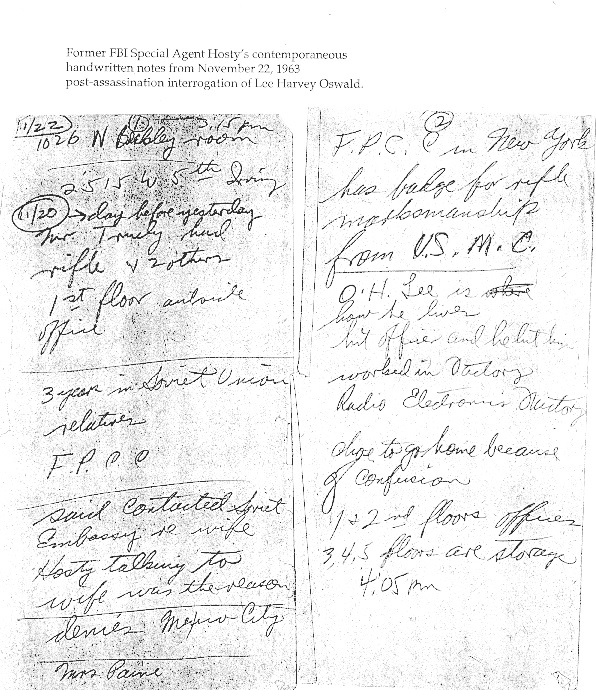 Former FBI Special Agent Hosty's contemporaneous
handwritten notes from November 22, 1963
post-assassination interrogation of Lee Harvey Oswald.
11/22 (1) 3:15 pm
1026 N Beckley room
2515 W 5th Irving
11/20 → day before yesterday
Mr. Truly had
rifle & 2 others
1st floor outside
office
3 years in Soviet Union
relatives
F.P.C.C
said contacted Soviet
Embassy re wife
Hosty talking to
wife was the reason
denies Mexico City
Mrs. Paine
(2)
F.P.C.C in New York
has badge for rifle
marksmanship
from U.S.M.C.
O.H. Lee is
how he lives
hit officer and he hit him
worked in Factory
Radio Electronics Factory
chose to go home because
of confusion
1 & 2nd floors offices
3,4,5 floors are storage
4:05 pm